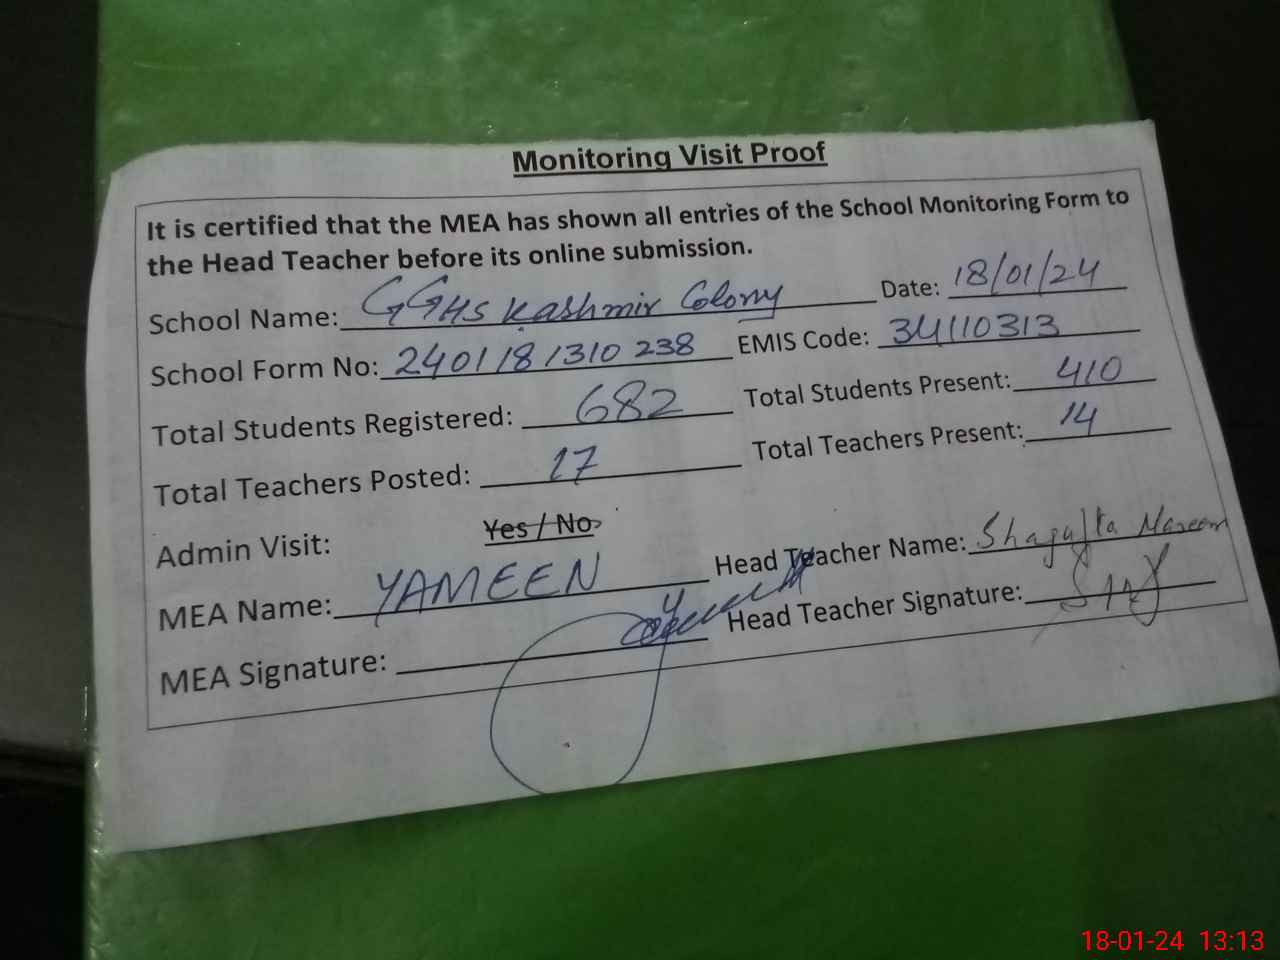 Monitoring Visit Proof
It is certified that the MEA has shown all entries of the School Monitoring Form to
the Head Teacher before its online submission.
School Name: GGHS Kashmir Colony Date: 18/01/24
School Form No: 2401181310238 EMIS Code: 34110313
Total Students Registered: 682 Total Students Present: 410
Total Teachers Posted: 17 Total Teachers Present: 14
Admin Visit: Yes / No
MEA Name: YAMEEN Head Teacher Name: Shagufta Nareem
MEA Signature: Head Teacher Signature:
18-01-24 13:13